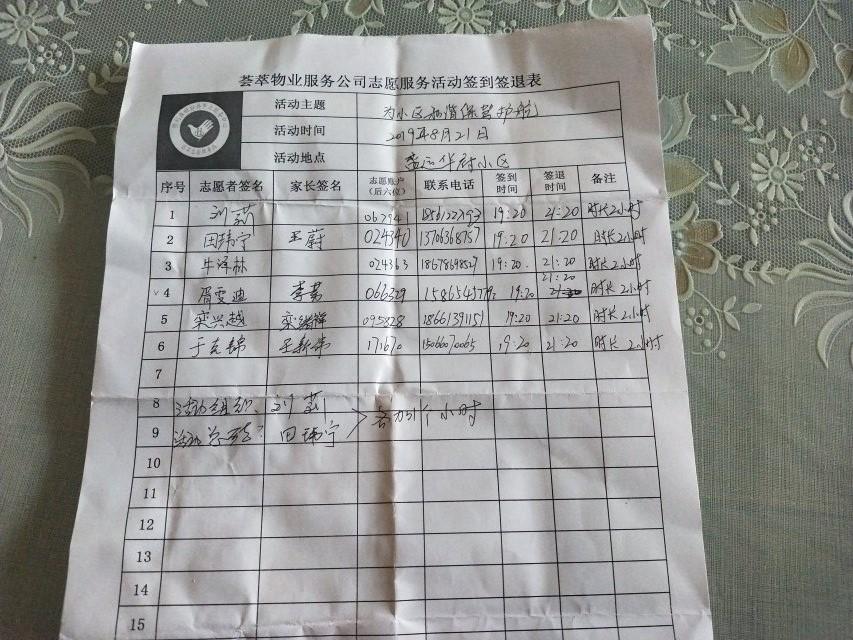 荟萃物业服务公司志愿服务活动签到签退表
活动主题 为小区和谐保驾护航
活动时间 2019年8月21日
活动地点 华府小区
序号 志愿者签名 家长签名 志愿账户（后六位） 联系电话 签到时间 签退时间 备注
1 刘莉 062941 19:20 21:20 时长2小时
2 田玮宁 王蔚 024340 13706368757 19:20 21:20 时长2小时
3 牛泽林 024363 18678698527 19:20 21:20 时长2小时
4 胥雯迪 李芳 19:20 21:20 时长2小时
5 栾兴越 栾绪辉 095828 18661391151 19:20 21:20 时长2小时
6 于克锦 171670 15066070065 19:20 21:20 时长2小时
7
8 活动组织：刘莉
9 活动总结：田玮宁 >各加1个小时
10
11
12
13
14
15